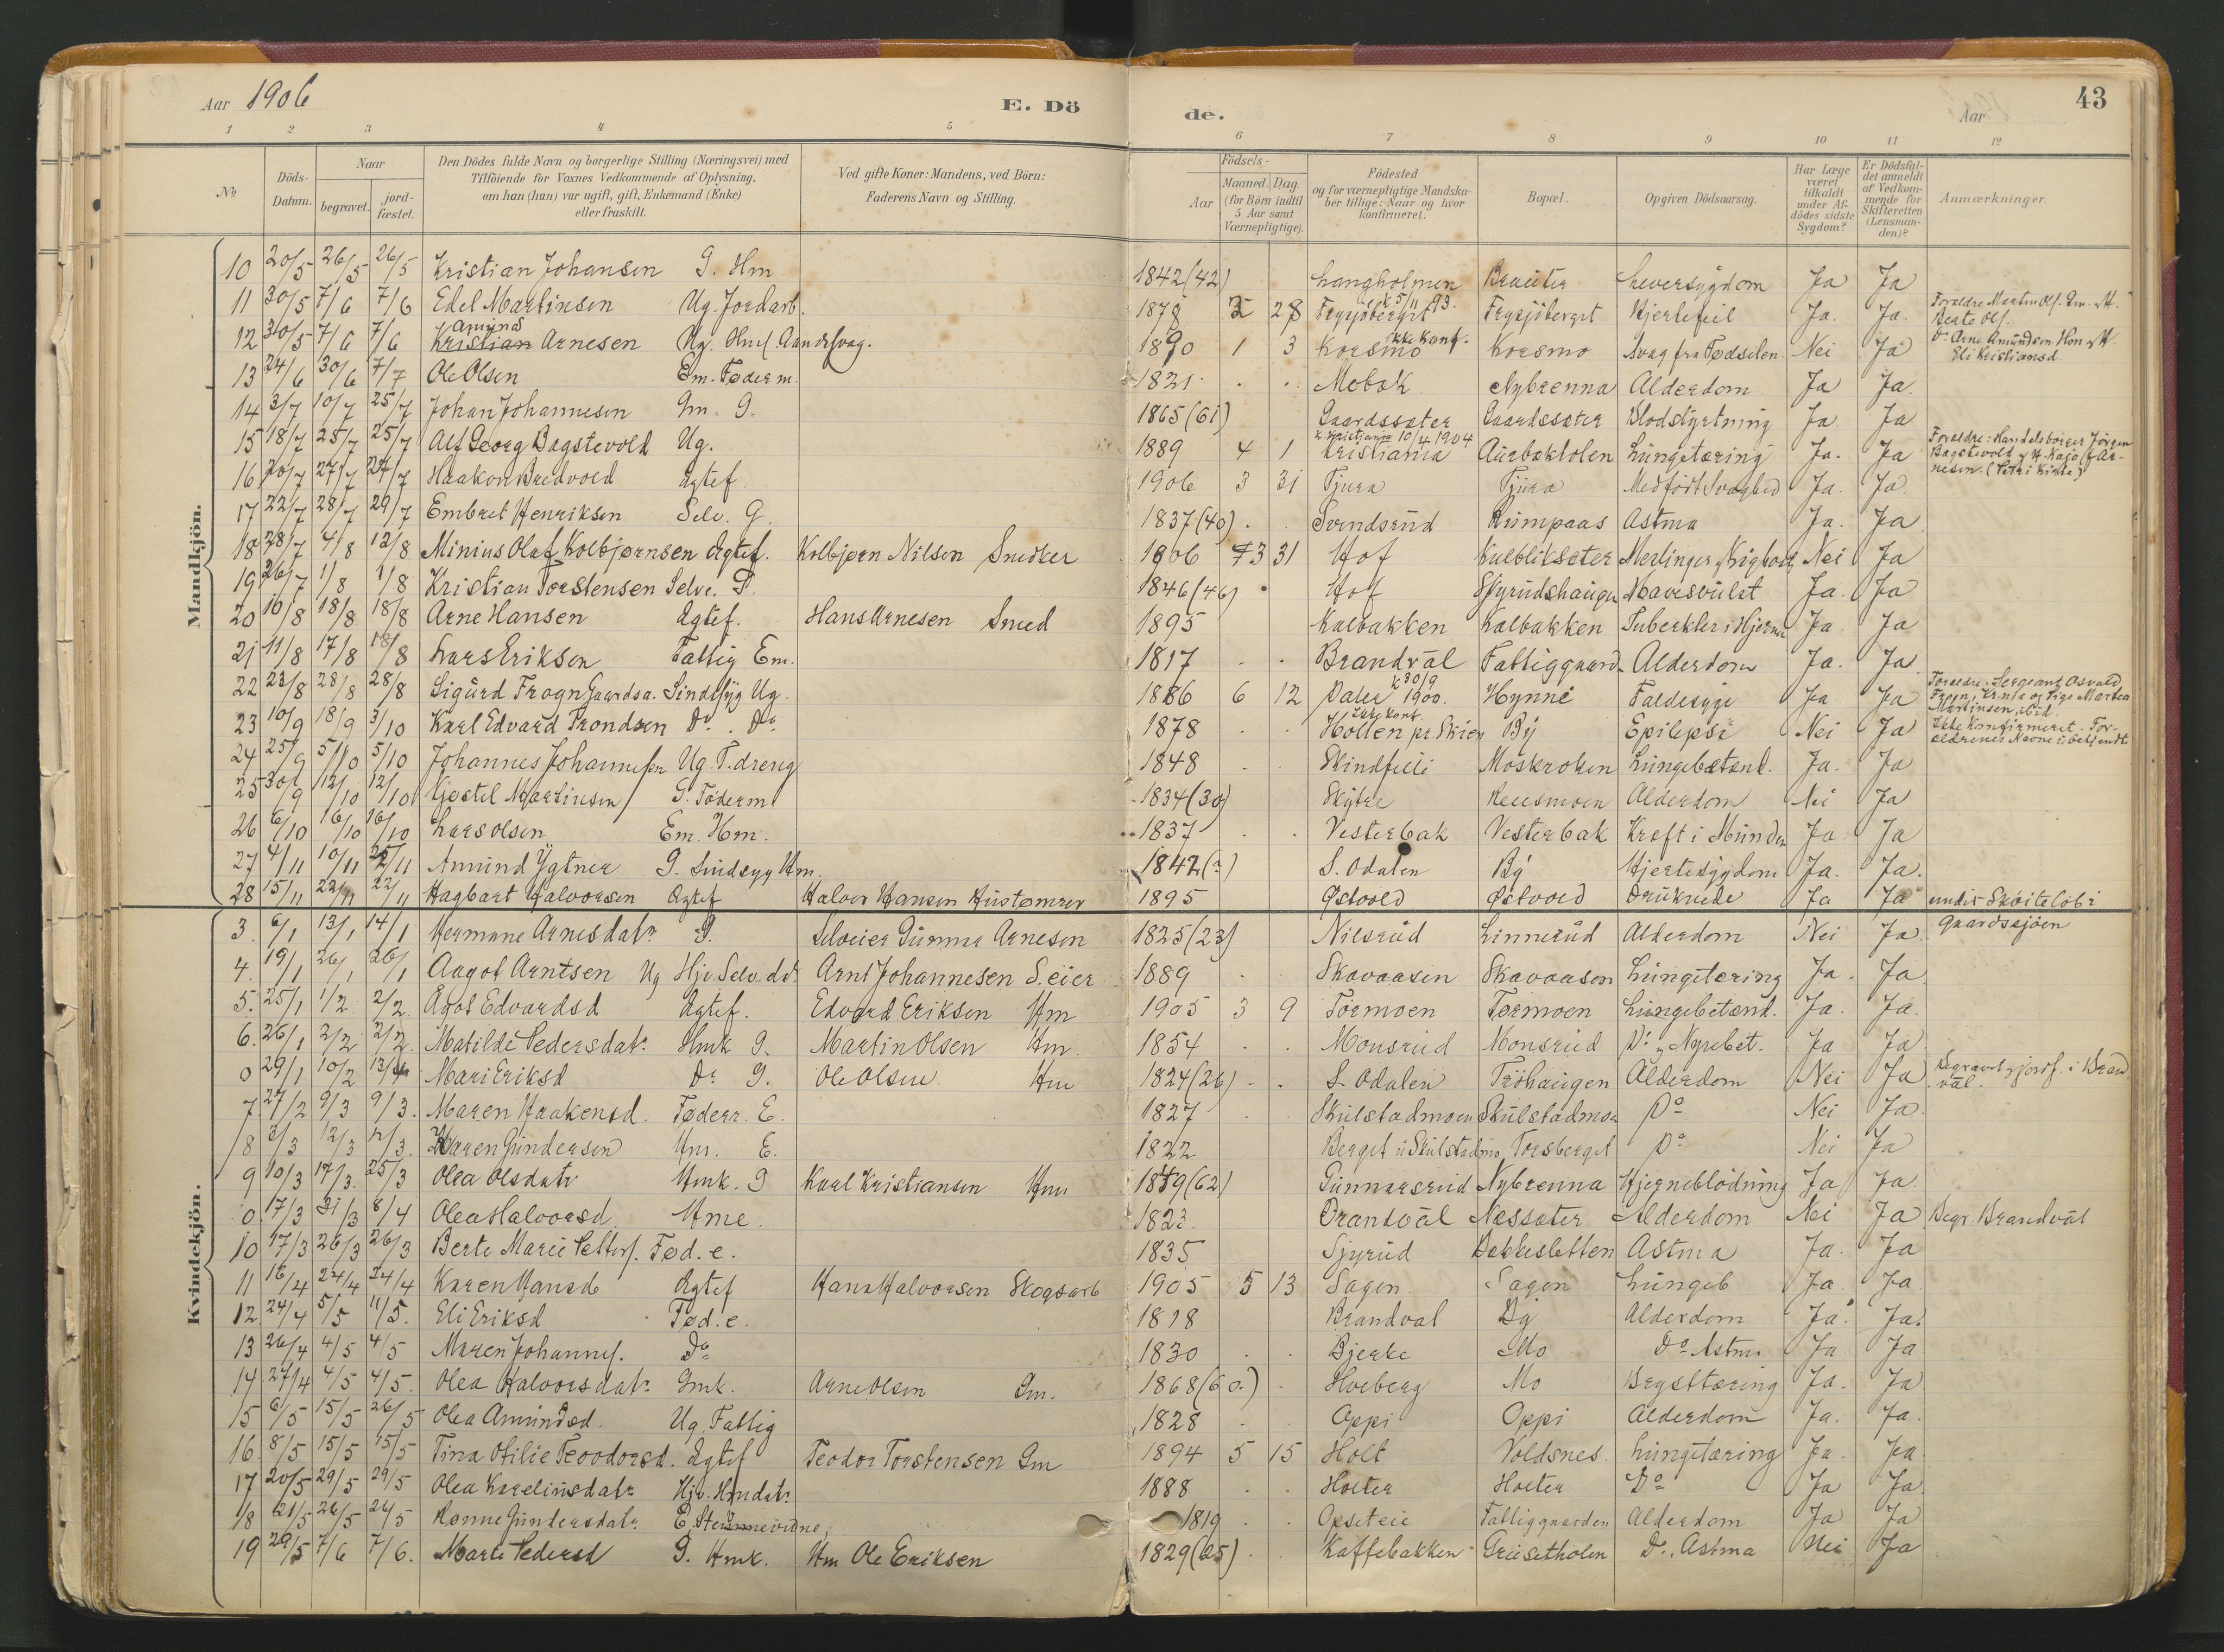 Aar 1906
E. Dö
de.
Aar
43
1 2 3 4 5 6 7 8 9 10 11 12
No
Döds-Datum.
Naar
begravet.
jord-fæstet.
Den Dödes fulde Navn og borgerlige Stilling (Næringsvei) med
Tilföiende for Voxnes Vedkommende af Oplysning,
om han (hun) var ugift, gift, Enkemand (Enke)
eller fraskilt.
Ved gifte Koner: Mandens, ved Börn:
Faderens Navn og Stilling.
Födsels-
Aar
Maaned. Dag.
(for Börn indtil
5 Aar samt
Værnepligtige).
Födested
og for værnepligtige Mandska-
ber tillige: Naar og hvor
konfirmeret.
Bopæl.
Opgiven Dödsaarsag.
Har Læge
været
tilkaldt
under Af-
dödes sidste
Sygdom?
Er Dödsfal-
det anmeldt
af Vedkom-
mende for
Skifteretten
(Lensman-
den)?
Anmærkninger.
Mandkjön.
10 20/5 26/5 26/5 Kristian Johansen G. Hm 1842 (42) Langholmen Braaten Leversygdom Ja Ja
11 30/5 7/6 7/6 Edel Martinsen Ug. Jordarb. 1878 28 Frysjöberget k 5/11 93. Frysjöberget Hjertefeil Ja. Ja. Foreldre Martin Ols. Gm. Berte Ols.
12 30/5 7/6 7/6 Kristian Amund Arnesen Ug. Hms. Aandssvag. 1890 1 3 Korsmo ikke Konf. Korsmo Svag fra Fødselen Nei Ja Do Arne Amundsen Hm og H. Eli Kristiansd.
13 24/6 30/6 7/7 Ole Olsen Em. Føderm. 1821 Mobæk Nybrenna Alderdom Ja Ja.
14 3/7 10/7 25/7 Johan Johannesen Gm. G. 1865 (61) Gaardssæter Gaardssæter Blodstyrtning Ja Ja
15 18/7 25/7 25/7 Alf Georg Bagstevold Ug. 1889 4 1 k. Kristiania 10/4 1904 Kristiania Aurbækholen Lungetæring Ja. Ja Foreldre: Handelsborger Jörgen Bagstevold og H. Kaja f. Arnesen. (Petri Kirke)
16 20/7 27/7 27/7 Haakon Bredvold Ægtef. 1906 3 31 Tjura Tjura Medfödt Svaghed Ja. Ja.
17 22/7 28/7 29/7 Embret Henriksen Selv. G. 1837 (40) Svendsrud Rumpaas Astma Ja. Ja
18 28/7 4/8 12/8 Minius Olaf Kolbjørnsen Ægtef. Kolbjørn Nilsen Snedker 1906 3 31 Hof Kulbliksæter Nei Ja
19 26/7 1/8 1/8 Kristian Torstensen Selve. G. 1846 (46) Hof Skyrudshaugen Mavesvulst Ja. Ja
20 10/8 18/8 18/8 Arne Hansen Ægtef. Hans Arnesen Smed 1895 Kalbakken Kalbakken Tuberkler i Hjernen Ja Ja
21 11/8 17/8 18/8 Lars Eriksen Fattig Em. 1817 Brandval Fattiggaard. Alderdom Ja. Ja
22 23/8 28/8 28/8 Sigurd Frogn Gaardsa. Sindssyg Ug. 1886 6 12 Dalen k 30/9 1900. Hynne Faldesyge Ja Ja Foreldre: Sergeant Osvald Frogn, Kr.nia og Pige Martea Martinsen, ibid.
23 10/9 18/9 3/10 Karl Edvard Trondsen Do. Do. 1878 Ikke konf. Holten pr. Skien By Epilepsi Nei Ja Ikke konfirmeret. Foreldrenes Navne ubekjendt
24 25/9 5/10 5/10 Johannes Johannesen Ug. T.dreng 1848 Skindfelli Moskroken Lungebetænd. Ja. Ja
25 30/9 12/10 12/10 Kjøstel Martinsen G. Föderm. 1834 (30) Skytre Reiesmoen Alderdom Nei Ja
26 6/10 16/10 16/10 Lars Olsen Em. Hm. 1837 Vesterbak Vesterbak Kreft i Munden Ja Ja
27 4/11 10/11 /11 Amund Ygtner G. Sindssyg Hm. 1842 (?) S. Odalen By Hjertesygdom Ja. Ja.
28 15/11 22/11 22/11 Hagbart Halvorsen Ægtef Halvor Hansen Hustømrer 1895 Østvold Østvold Druknede Ja Ja under Skøiteløb i
Gaardssjöen
Kvindekjön.
3. 6/1 13/1 14/1 Hermane Arnesdatr. G. Selveier Gunnar Arnesen 1825 (23) Nilsrud Linnerud Alderdom Nei Ja.
4. 19/1 26/1 26/1 Aagot Arntsen Ug Hjv Selv.dtr Arnt Johannesen S.eier 1889 Skavaasen Skavaasen Lungetæring Ja. Ja.
5. 25/1 1/2 2/2 Agot Edvardsd Ægtef. Edvard Eriksen Hm 1905 3 9 Tormoen Tormoen Lungebetænd. Ja. Ja.
6. 26/1 2/2 2/2. Matilde Pedersdatr. Hmk G. Martin Olsen Hm. 1854 Monsrud Monsrud Do. og Nyrebet. Ja Ja
0 29/1 10/2 13/4 Mari Eriksd Do G. Ole Olsen Hm 1824 (26) S. Odalen Tröhaugen Alderdom Nei Ja Begravet og jordf. i Brandval.
7. 27/2 9/3 9/3. Maren Haakensd. Føderr. E. 1827 Skulstadmoen Skulstadmoen Do Nei Ja.
8 3/3 12/3 12/3. Karen Gundersen Hm. E. 1822 Berget u Skulstadmo Torsberget Do Nei Ja
9 10/3 17/3. 25/3 Olea Olsdatr Hmk. G Karl Kristiansen Hm 1849 (62) Gunnarsrud Nybrenna Hjerneblödning Ja Ja.
0. 17/3 31/3 8/4 Olea Halvorsd. Hme. 1823. Brandval Næssæter Alderdom Nei Ja Begr. Brandval
10 17/3 26/3 26/3 Berte Marie Petters. Fød. e. 1835 Sjyrud Bakkesletten Astma Ja. Ja
11 16/4 24/4 24/4 Karen Hansd Ægtef Hans Halvorsen Skogsarb 1905 5 13 Sagen Sagen Lungeb Ja. Ja.
12 24/4 5/5 11/5. Eli Eriksd Fød. e. 1818 Brandval By Alderdom Ja. Ja.
13 26/4 4/5 4/5 Maren Johannes. Do 1830 Bjerke Mo Do. Astma Ja Ja
14 27/4 4/5 4/5. Olea Halvorsdatr. Gmk. Arne Olsen Gm. 1868 (60.) Hveberg Mo Brysttæring Ja. Ja
15 6/5 15/5 26/5 Olea Amundsd. Ug. Fattig 1828 Oppi Oppi Alderdom Ja. Ja.
16 8/5 15/5 15/5 Tina Otilie Teodorsd. Ægtef Teodor Torstensen Gm 1894 5 15 Holt Voldsnes. Lungetæring Ja. Ja
17 20/5 29/5 29/5 Olea Karelinsdatr. Hjv. Hmdatr. 1888 Holter Holter Do Ja Ja.
18 21/5 26/5 24/5 Rønne Gundersdatr. E. 1819 Opseteie Fattiggaarden Alderdom Ja Ja
19 29/5 7/6 7/6. Marte Pedersd G. Hmk. Hm Ole Eriksen 1829 (25) Kaffebakken Griesetholen Do. Astma Nei Ja